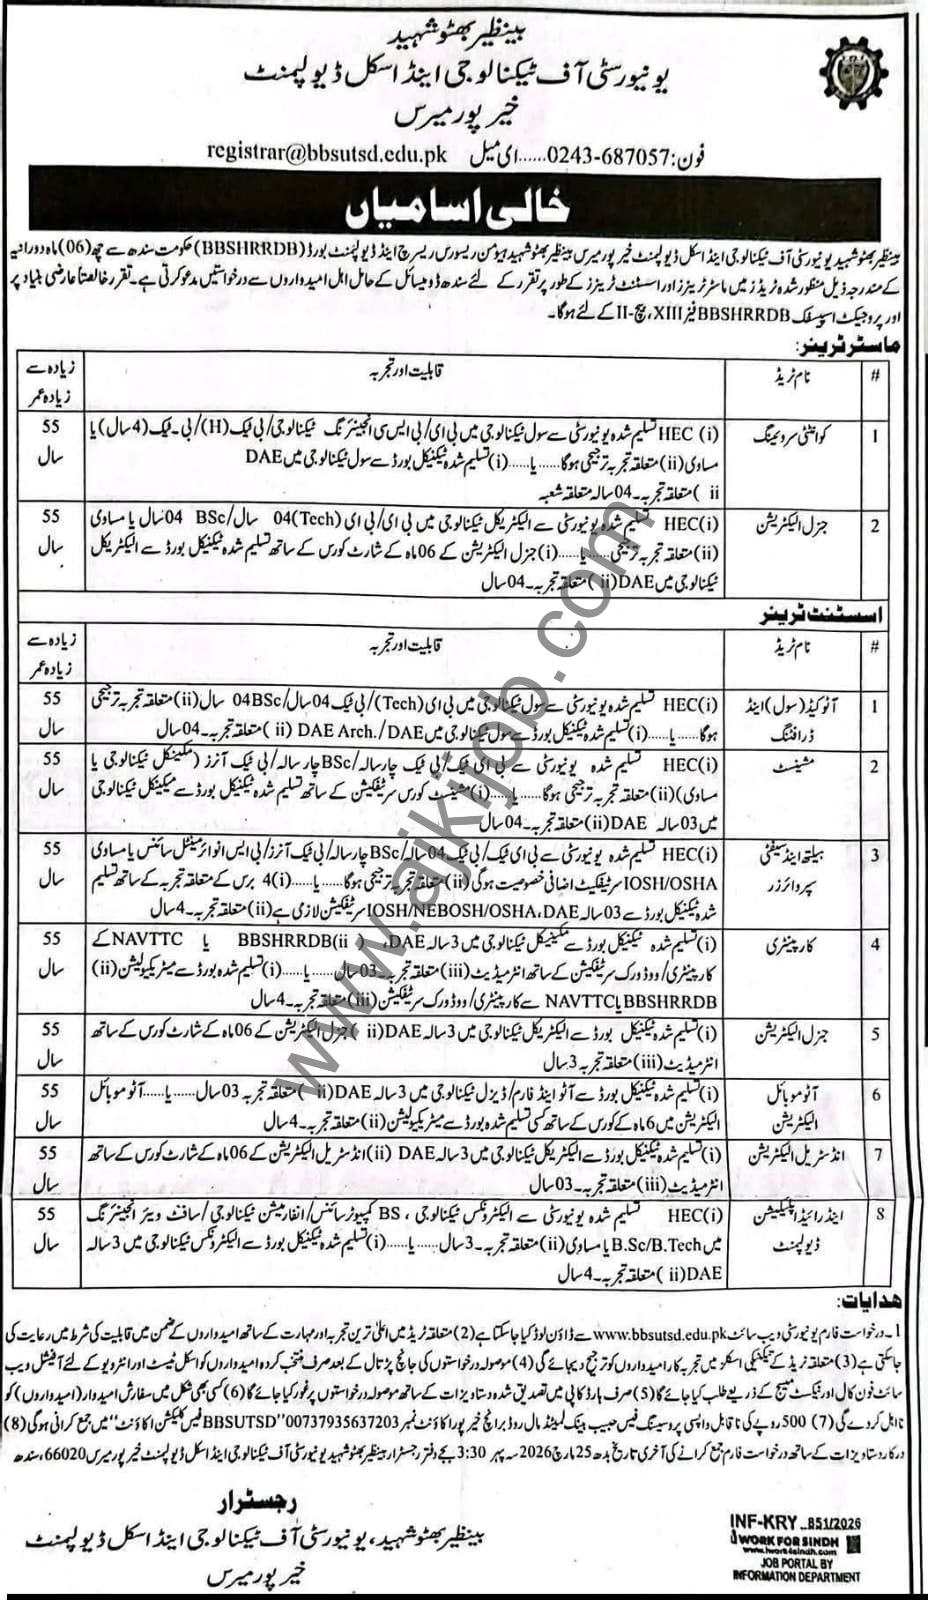 بینظیر بھٹو شہید
یونیورسٹی آف ٹیکنالوجی اینڈ اسکل ڈیولپمنٹ
خیرپور میرس
فون:0243-687057......ای میل registrar@bbsutsd.edu.pk
خالی اسامیاں
بینظیر بھٹو شہید یونیورسٹی آف ٹیکنالوجی اینڈ اسکل ڈیولپمنٹ خیرپور میرس بینظیر بھٹو شہید ہیومن ریسورس ریسرچ اینڈ ڈیولپمنٹ بورڈ (BBSHRRDB) حکومت سندھ سے چھ (06) ماہ دورانیہ
کے مندرجہ ذیل منظور شدہ ٹریڈز میں ماسٹر ٹرینرز اور اسسٹنٹ ٹرینرز کے طور پر تقرر کے لئے سندھ ڈومیسائل کے حامل اہل امیدواروں سے درخواستیں مدعو کرتی ہے۔ تقرر خالصتاً عارضی بنیاد پر
اور پروجیکٹ اسپیسفک BBSHRRDB فیز XIII، بیچ-II کے لئے ہوگا۔
ماسٹر ٹرینر:
# نام ٹریڈ قابلیت اور تجربہ زیادہ سے
زیادہ عمر
1 کوانٹٹی سروئینگ HEC (i) تسلیم شدہ یونیورسٹی سے سول ٹیکنالوجی میں بی ای/بی ایس سی انجینئرنگ ٹیکنالوجی/بی ٹیک (H)/بی۔ٹیک (4 سال) یا 55
مساوی (ii) متعلقہ تجربہ ترجیحی ہوگا......یا......(i) تسلیم شدہ ٹیکنیکل بورڈ سے سول ٹیکنالوجی میں DAE سال
ii ) متعلقہ تجربہ۔04 سالہ متعلقہ شعبہ
2 جنرل الیکٹریشن HEC(i) تسلیم شدہ یونیورسٹی سے الیکٹریکل ٹیکنالوجی میں بی ای/بی ای (Tech) 04 سال/04 BSc سال یا مساوی 55
(ii) متعلقہ تجربہ ترجیحی......یا......(i) جنرل الیکٹریشن کے 06 ماہ کے شارٹ کورس کے ساتھ تسلیم شدہ ٹیکنیکل بورڈ سے الیکٹریکل سال
ٹیکنالوجی میں DAE(ii) متعلقہ تجربہ۔04 سال
اسسٹنٹ ٹرینر
# نام ٹریڈ قابلیت اور تجربہ زیادہ سے
زیادہ عمر
1 آٹو کیڈ (سول) اینڈ HEC(i) تسلیم شدہ یونیورسٹی سے سول ٹیکنالوجی میں بی ای (Tech)/بی ٹیک 04 سال/04BSc سال (ii) متعلقہ تجربہ ترجیحی 55
ڈرافٹنگ ہوگا......یا......(i) تسلیم شدہ ٹیکنیکل بورڈ سے سول ٹیکنالوجی میں DAE Arch./DAE (ii) متعلقہ تجربہ۔04 سال سال
2 مشینسٹ HEC(i) تسلیم شدہ یونیورسٹی سے بی ای ٹیک/بی ٹیک چار سالہ/BSc چار سالہ/بی ٹیک آنرز (مکینیکل ٹیکنالوجی یا 55
مساوی) (ii) متعلقہ تجربہ ترجیحی ہوگا......یا......(i) مشینسٹ کورس سرٹیفکیشن کے ساتھ تسلیم شدہ ٹیکنیکل بورڈ سے میکینیکل ٹیکنالوجی سال
میں 03 سالہ DAE (ii) متعلقہ تجربہ۔04 سال
3 ہیلتھ اینڈ سیفٹی HEC(i) تسلیم شدہ یونیورسٹی سے بی ای ٹیک/بی ٹیک 04 سالہ/BSc چار سالہ/بی ٹیک آنرز/بی ایس انوائرمینٹل سائنس یا مساوی 55
سپروائزر IOSH/OSHA سرٹیفکیٹ اضافی خصوصیت ہوگی (ii) متعلقہ تجربہ ترجیحی ہوگا......یا......(i) 4 برس کے متعلقہ تجربہ کے ساتھ تسلیم سال
شدہ ٹیکنیکل بورڈ سے 03 سالہ DAE، IOSH/NEBOSH/OSHA سرٹیفکیشن لازمی ہے (ii) متعلقہ تجربہ۔4 سال
4 کارپینٹری (i) تسلیم شدہ ٹیکنیکل بورڈ سے مکینیکل ٹیکنالوجی میں 3 سالہ DAE، (ii) BBSHRRDB یا NAVTTC کے 55
کارپینٹری/ووڈ ورک سرٹیفکیشن کے ساتھ انٹرمیڈیٹ (iii) متعلقہ تجربہ۔03 سال......یا......(i) تسلیم شدہ بورڈ سے میٹریکولیشن (ii) سال
BBSHRRDB یا NAVTTC سے کارپینٹری/ووڈ ورک سرٹیفکیشن (iii) متعلقہ تجربہ۔4 سال
5 جنرل الیکٹریشن (i) تسلیم شدہ ٹیکنیکل بورڈ سے الیکٹریکل ٹیکنالوجی میں 3 سالہ DAE(ii) جنرل الیکٹریشن کے 06 ماہ کے شارٹ کورس کے ساتھ 55
انٹرمیڈیٹ (iii) متعلقہ تجربہ 3 سال سال
6 آٹو موبائل (i) تسلیم شدہ ٹیکنیکل بورڈ سے آٹو اینڈ فارم/ڈیزل ٹیکنالوجی میں 3 سالہ DAE(ii) متعلقہ تجربہ 03 سال......یا......آٹو موبائل 55
الیکٹریشن الیکٹریشن میں 6 ماہ کے کورس کے ساتھ کسی تسلیم شدہ بورڈ سے میٹریکولیشن (ii) متعلقہ تجربہ۔4 سال سال
7 انڈسٹریل الیکٹریشن (i) تسلیم شدہ ٹیکنیکل بورڈ سے الیکٹریکل ٹیکنالوجی میں 3 سالہ DAE (ii) انڈسٹریل الیکٹریشن کے 06 ماہ کے شارٹ کورس کے ساتھ 55
انٹرمیڈیٹ (iii) متعلقہ تجربہ۔03 سال سال
8 اینڈرائیڈ اپلیکیشن HEC(i) تسلیم شدہ یونیورسٹی سے الیکٹرونکس ٹیکنالوجی، BS کمپیوٹر سائنس/انفارمیشن ٹیکنالوجی/سافٹ ویئر انجینئرنگ 55
ڈیولپمنٹ میں B.Sc/B.Tech یا مساوی (ii) متعلقہ تجربہ۔3 سال......یا......(i) تسلیم شدہ ٹیکنیکل بورڈ سے الیکٹرونکس ٹیکنالوجی میں 3 سالہ سال
DAE (ii) متعلقہ تجربہ۔4 سال
ھدایات:
1۔ درخواست فارم یونیورسٹی ویب سائٹ www.bbsutsd.edu.pk سے ڈاؤن لوڈ کیا جاسکتا ہے (2) متعلقہ ٹریڈ میں اعلیٰ ترین تجربہ اور مہارت کے ساتھ امیدواروں کے ضمن میں قابلیت کی شرط میں رعایت کی
جاسکتی ہے (3) متعلقہ ٹریڈ کے ٹیکنیکی اسکلز میں تجربہ کار امیدواروں کو ترجیح دیجائے گی (4) موصولہ درخواستوں کی جانچ پڑتال کے بعد صرف منتخب کردہ امیدواروں کو اسکل ٹیسٹ اور انٹرویو کے لئے آفیشل ویب
سائٹ فون کال اور ٹیکسٹ میسج کے ذریعے طلب کیا جائے گا (5) صرف ہارڈ کاپی میں تصدیق شدہ دستاویزات کے ساتھ موصولہ درخواستوں پر غور کیا جائے گا (6) کسی بھی شکل میں سفارش امیدوار (امیدواروں) کو
نااہل کردے گی (7) 500 روپے کی ناقابل واپسی پروسیسنگ فیس حبیب بینک لمیٹڈ مال روڈ برانچ خیرپور اکاؤنٹ نمبر 00737935637203 "BBSUTSD فیس کلیکشن اکاؤنٹ" میں جمع کرانی ہوگی (8)
درکار دستاویزات کے ساتھ درخواست فارم جمع کرانے کی آخری تاریخ بدھ 25 مارچ 2026 سہ پہر 3:30 بجے دفتر رجسٹرار بینظیر بھٹو شہید یونیورسٹی آف ٹیکنالوجی اینڈ اسکل ڈیولپمنٹ خیرپور میرس 66020، سندھ
رجسٹرار
بینظیر بھٹو شہید، یونیورسٹی آف ٹیکنالوجی اینڈ اسکل ڈیولپمنٹ
خیرپور میرس
INF-KRY 851/2026
WORK FOR SINDH
www.iwork4sindh.com
JOB PORTAL BY
INFORMATION DEPARTMENT
www.ajkijob.com